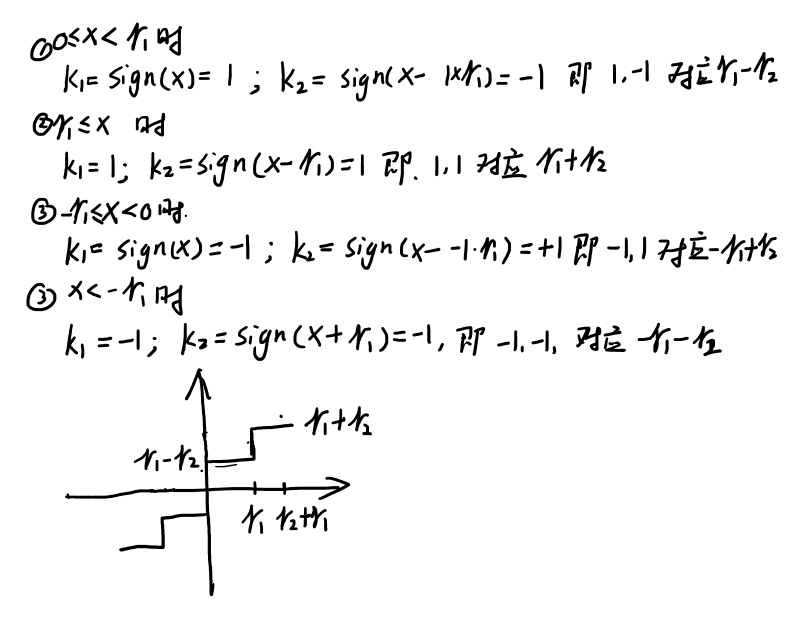 ① 0≤x<r₁时
k₁=sign(x)=1 ; k₂=sign(x-1×r₁)=-1 即 1,-1 对应r₁-r₂
②r₁≤x 时
k₁=1; k₂=sign(x-r₁)=1 即. 1,1 对应 r₁+r₂
③-r₁≤x<0时.
k₁=sign(x)=-1 ; k₂=sign(x--1·r₁)=+1 即 -1,1 对应-r₁+r₂
③ x<-r₁时
k₁=-1; k₂=sign(x+r₁)=-1, 即 -1,-1, 对应 -r₁-r₂
r₁+r₂
r₁-r₂
r₁ r₂+r₁